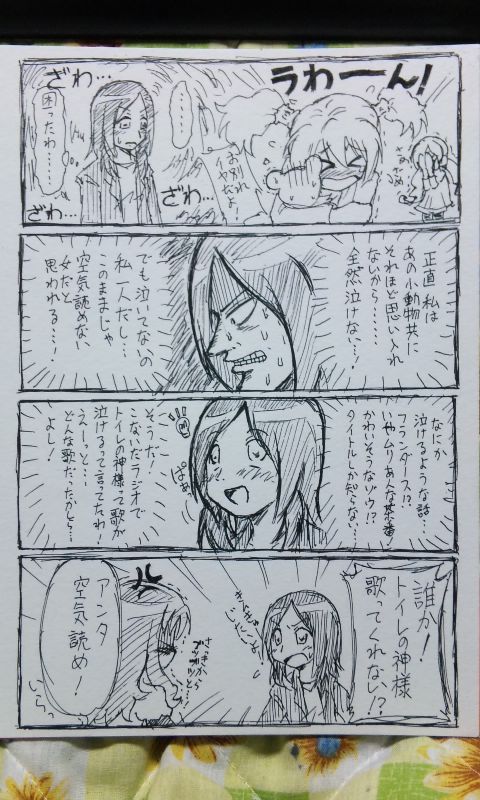 うわーん!
お別れ
イヤだよ!
ざわ…
ざわ…
ざわ…
………
困ったわ……
正直 私は
あの小動物共に
それほど思い入れ
ないから……
全然泣けない…!
でも泣いてないの
私一人だし…
このままじゃ
空気読めない
女だと
思われる…!
なにか
泣けるような話…
フランダース!?
いやムリあんな茶番
かわいそうなゾウ!?
タイトルしか知らない…
ぱぁっ
そうだ!
こないだラジオで
トイレの神様って歌が
泣けるって言ってたわ!
えーっと…
どんな歌だったかしら…
よし!
誰か!
トイレの神様
歌ってくれない!?
さっきから
ブツブツと…
アンタ
空気読め!
いらっ